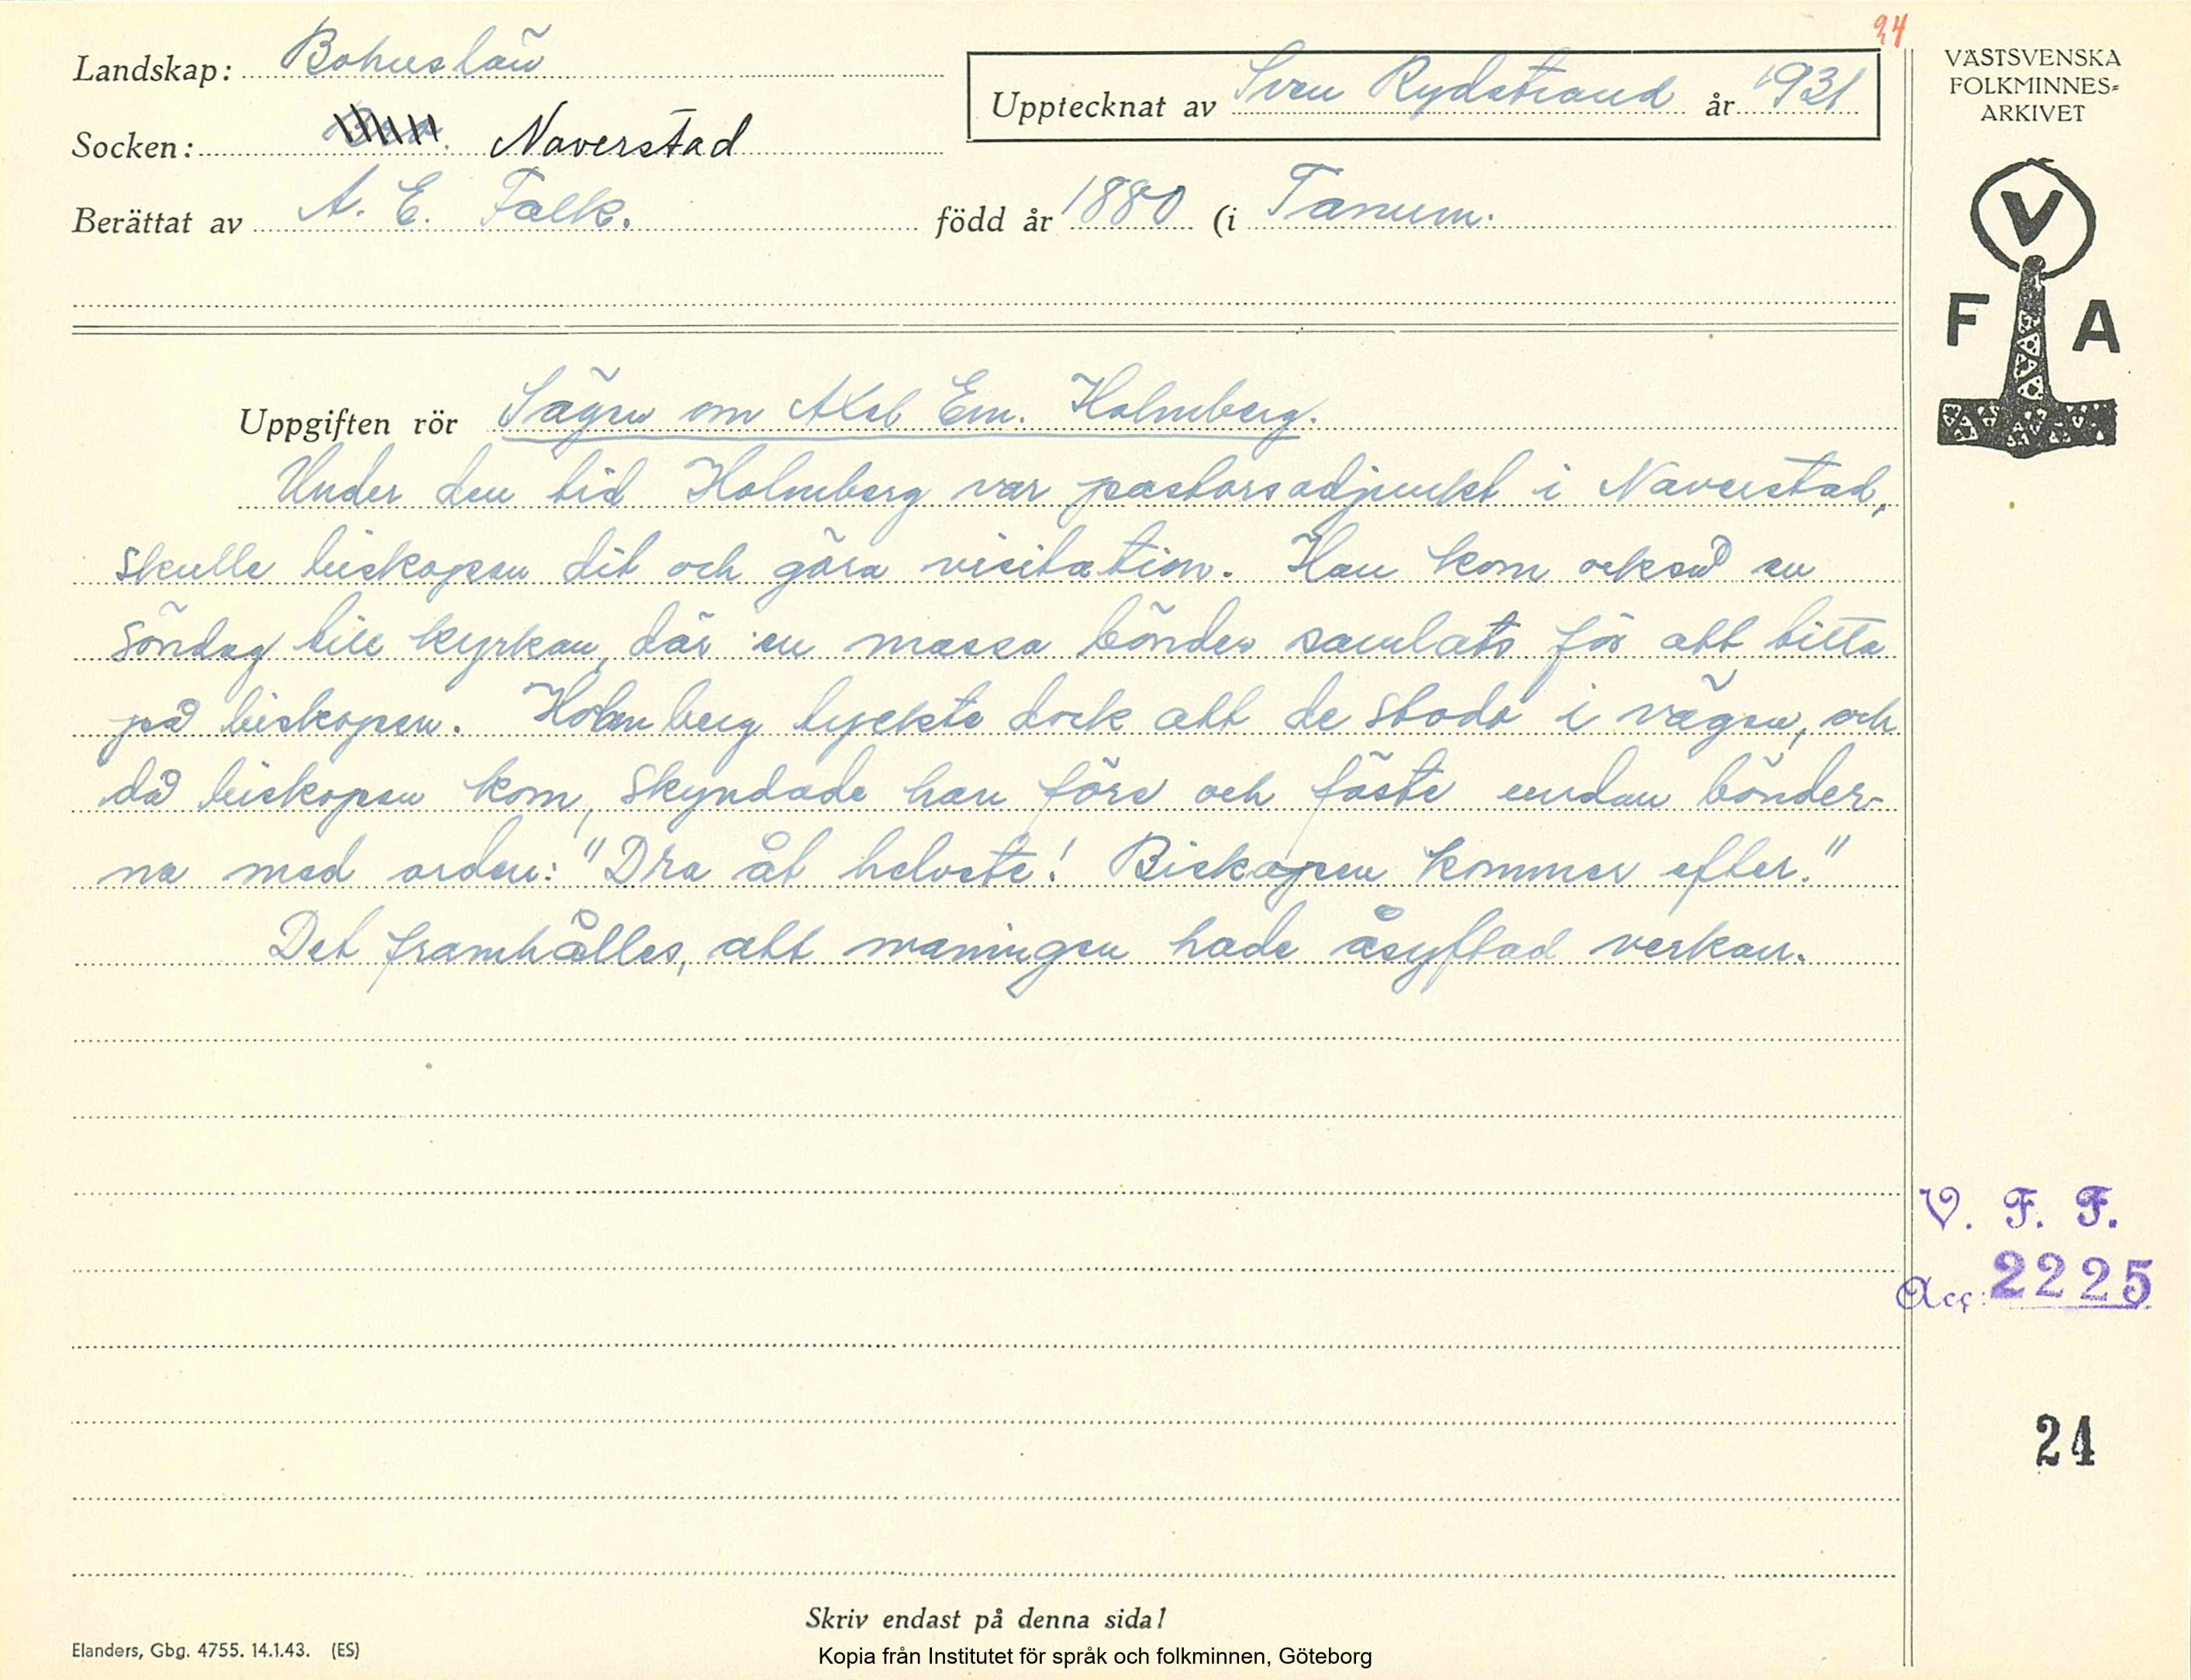 24
Landskap: Bohuslän
Socken: Naverstad
Upptecknat av Sven Rydstrand år 1931
Berättat av A. E. Falk. född år 1880 (i Tanum.
VÄSTSVENSKA
FOLKMINNES-
ARKIVET
V
F A
Uppgiften rör Sägen om Axel Em. Holmberg.
Under den tid Holmberg var pastorsadjunkt i Naverstad,
skulle biskopen dit och göra visitation. Han kom också en
söndag till kyrkan, där en massa bönder samlats för att titta
på biskopen. Holmberg tyckte dock att de stodo i vägen, och
då biskopen kom, skyndade han före och föste undan bönder-
na med orden: "Dra åt helvete! Biskopen kommer efter."
Det framhålles, att maningen hade åsyftad verkan.
V. F. F.
Acc: 2225
24
Skriv endast på denna sida!
Elanders, Gbg. 4755. 14.1.43. (ES)
Kopia från Institutet för språk och folkminnen, Göteborg